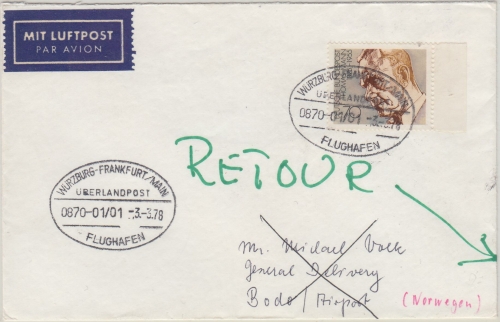 MIT LUFTPOST
PAR AVION
WÜRZBURG-FRANKFURT/MAIN
ÜBERLANDPOST
0870-01/01 -3.-3.78
FLUGHAFEN
RETOUR
WÜRZBURG-FRANKFURT/MAIN
ÜBERLANDPOST
0870-01/01 -3.-3.78
FLUGHAFEN
Mr. Michael Volk
General Delivery
Bodo/Airport
(Norwegen)